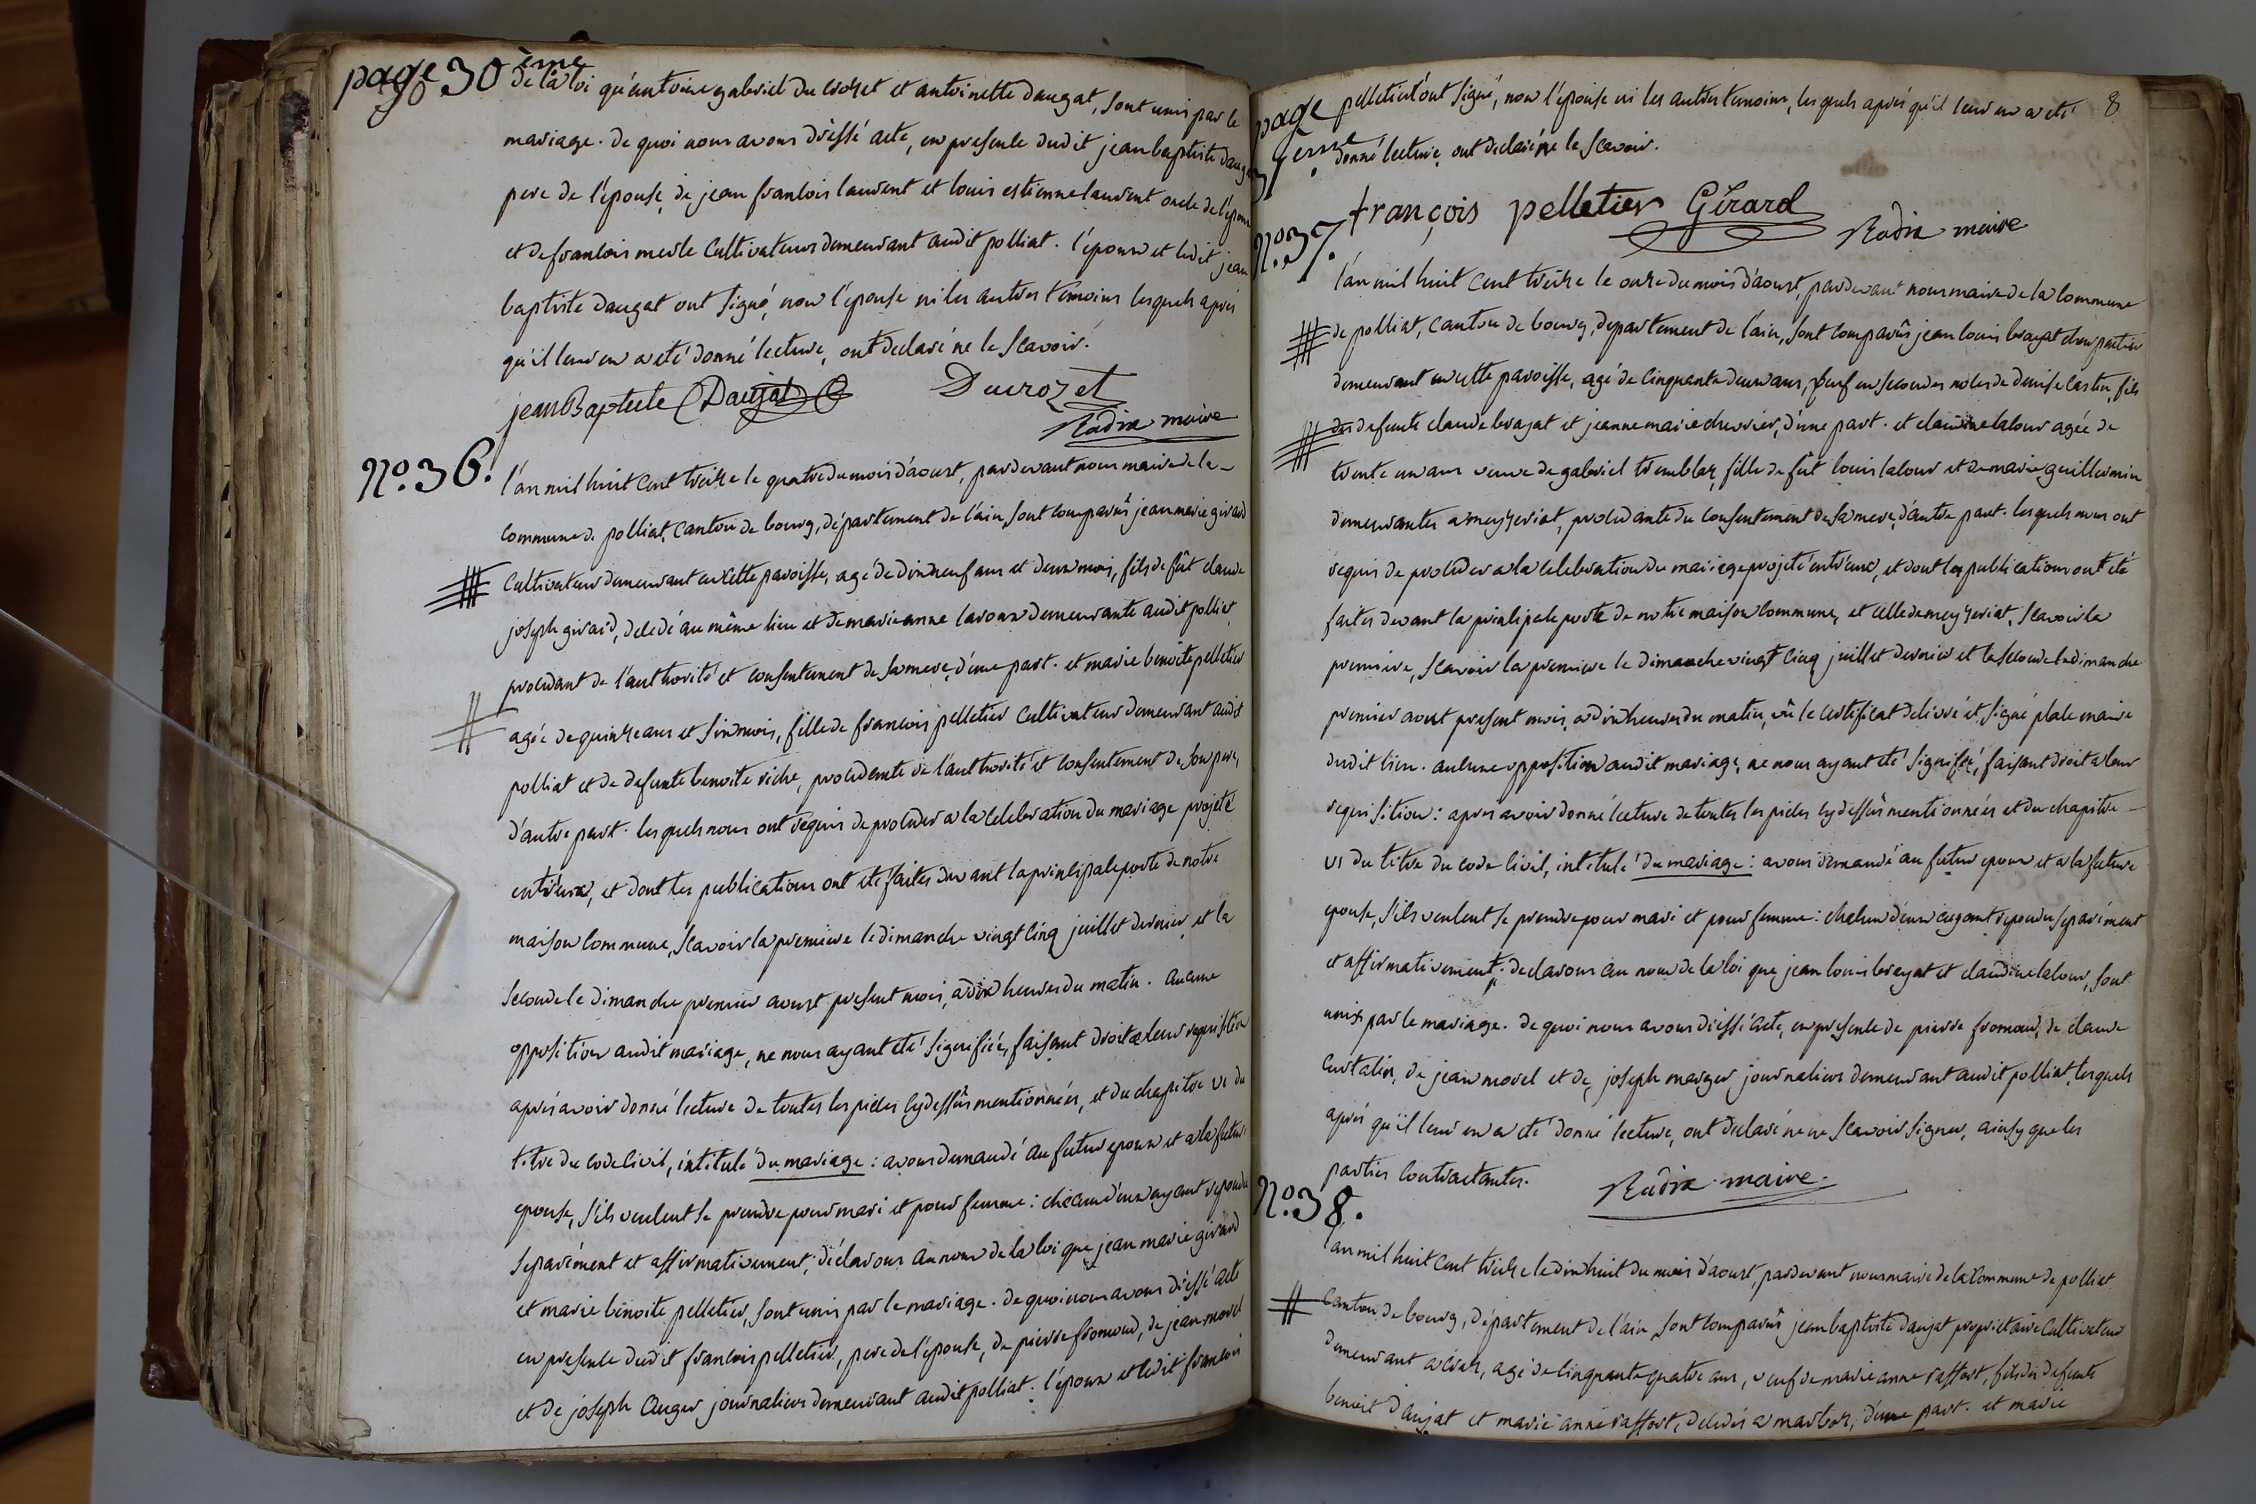 page 30 ème
de la loi qu'antoine gabriel du crozet et antoinette daugat, sont unis par le
mariage. de quoi nous avons dressé acte, en presence dudit jean baptiste daugat
pere de l'epouse, de jean francois laurent et louis estienne laurent oncle de l'epoux
et de francois merle cultivateurs demeurant audit polliat. l'epoux et ledit jean
baptiste daugat ont signé, non l'epouse ni les autres temoins lesquels après
qu'il leur en a eté donné lecture, ont declaré ne le scavoir.
jean Baptiste Daujat Ducrozet
Radix maire
N.o 36.
l'an mil huit cent treize le quatre du mois d'aoust, pardevant nous maire de la
commune de polliat, canton de bourg, département de l'ain, sont comparûs jean marie girard
cultivateur demeurant en cette paroisse, agé de dix neuf ans et deux mois, fils de fût claude
joseph girard, decedé au même lieu et de marie anne demeurante audit polliat,
procedant de l'authorité et consentement de sa mere, d'une part. et marie benoite pelletier
agée de quinze ans et six mois, fille de francois pelletier cultivateur demeurant audit
polliat et de defunte benoite riche, procedante de l'authorité et consentement de son pere,
d'autre part. lesquels nous ont requis de proceder a la celebration du mariage projeté
entr'eux, et dont les publications ont eté faites devant la principale porte de notre
maison commune, scavoir la premiere le dimanche vingt cinq juillet dernier, et la
seconde le dimanche premier aoust present mois, a dix heures du matin. aucune
opposition audit mariage, ne nous ayant eté signifiée, faisant droit a leur requisition
après avoir donné lecture de toutes les pieces cy dessûs mentionnées, et du chapitre vi du
titre du code civil, intitulé du mariage : avons demandé au futur epoux et a la future
epouse, s'ils veulent se prendre pour mari et pour femme : chacun d'eux ayant repondu
separément et affirmativement ; déclarons au nom de la loi que jean marie girard
et marie benoite pelletier, sont unis par le mariage. de quoi nous avons dressé acte
en presence dudit francois pelletier, pere de l'epouse, de pierre fromond, de jean morel
et de joseph auger journaliers demeurant audit polliat. l'epoux et ledit francois
page
pelletier ont signé, non l'epouse ni les autres temoins, lesquels après qu'il leur en a eté 8
donné lecture, ont declaré ne le scavoir.
françois pelletier Girard
Radix maire
N.o 37.
l'an mil huit cent treize le onze du mois d'aoust, pardevant nous maire de la commune
de polliat, canton de bourg, departement de l'ain, sont comparûs jean louis brayat
demeurant en cette paroisse, agé de cinquante deux ans, veuf en secondes noces de denise castin, fils
des defunts claude brayat et jeanne marie chevrier, d'une part. et claudine lacour agée de
trente un ans veuve de gabriel tremblay, fille de fût louis lacour et de marie guillermin
demeurantes a meyzeriat, procedante du consentement de sa mere, d'autre part. lesquels nous ont
requis de proceder a la celebration du mariage projeté entr'eux, et dont les publications ont eté
faites devant la principale porte de notre maison commune, et celle de meyzeriat, scavoir la
premiere, scavoir la premiere le dimanche vingt cinq juillet dernier et la seconde le dimanche
premier aoust present mois, a dix heures du matin, vû le certificat delivré et signé p le maire
dudit lieu. aucune opposition audit mariage, ne nous ayant eté signifiée, faisant droit a leur
requisition : apres avoir donné lecture de toutes les pieces cy dessûs mentionnées et du chapitre
vi du titre du code civil, intitulé du mariage : avons demandé au futur epoux et a la future
epouse, s'ils veulent se prendre pour mari et pour femme : chacun d'eux ayant repondu separément
et affirmativement ; declarons au nom de la loi que jean louis brayat et claudine lacour, sont
unis par le mariage. de quoi nous avons dressé acte, en presence de pierre fromond, de claude
de jean morel et de joseph journaliers demeurant audit polliat, lesquels
après qu'il leur en a eté donné lecture, ont declaré ne scavoir signer, ainsy que les
parties contractantes.
Radix maire
N.o 38.
l'an mil huit cent treize le dix huit du mois d'aoust, pardevant nous maire de la commune de polliat
canton de bourg, département de l'ain, sont comparûs jean baptiste daujat proprietaire cultivateur
demeurant a agé de cinquante quatre ans, veuf de marie anne raffort, fils des defunts
benoit daujat et marie anne raffort, decedés a marboz, d'une part. et marie